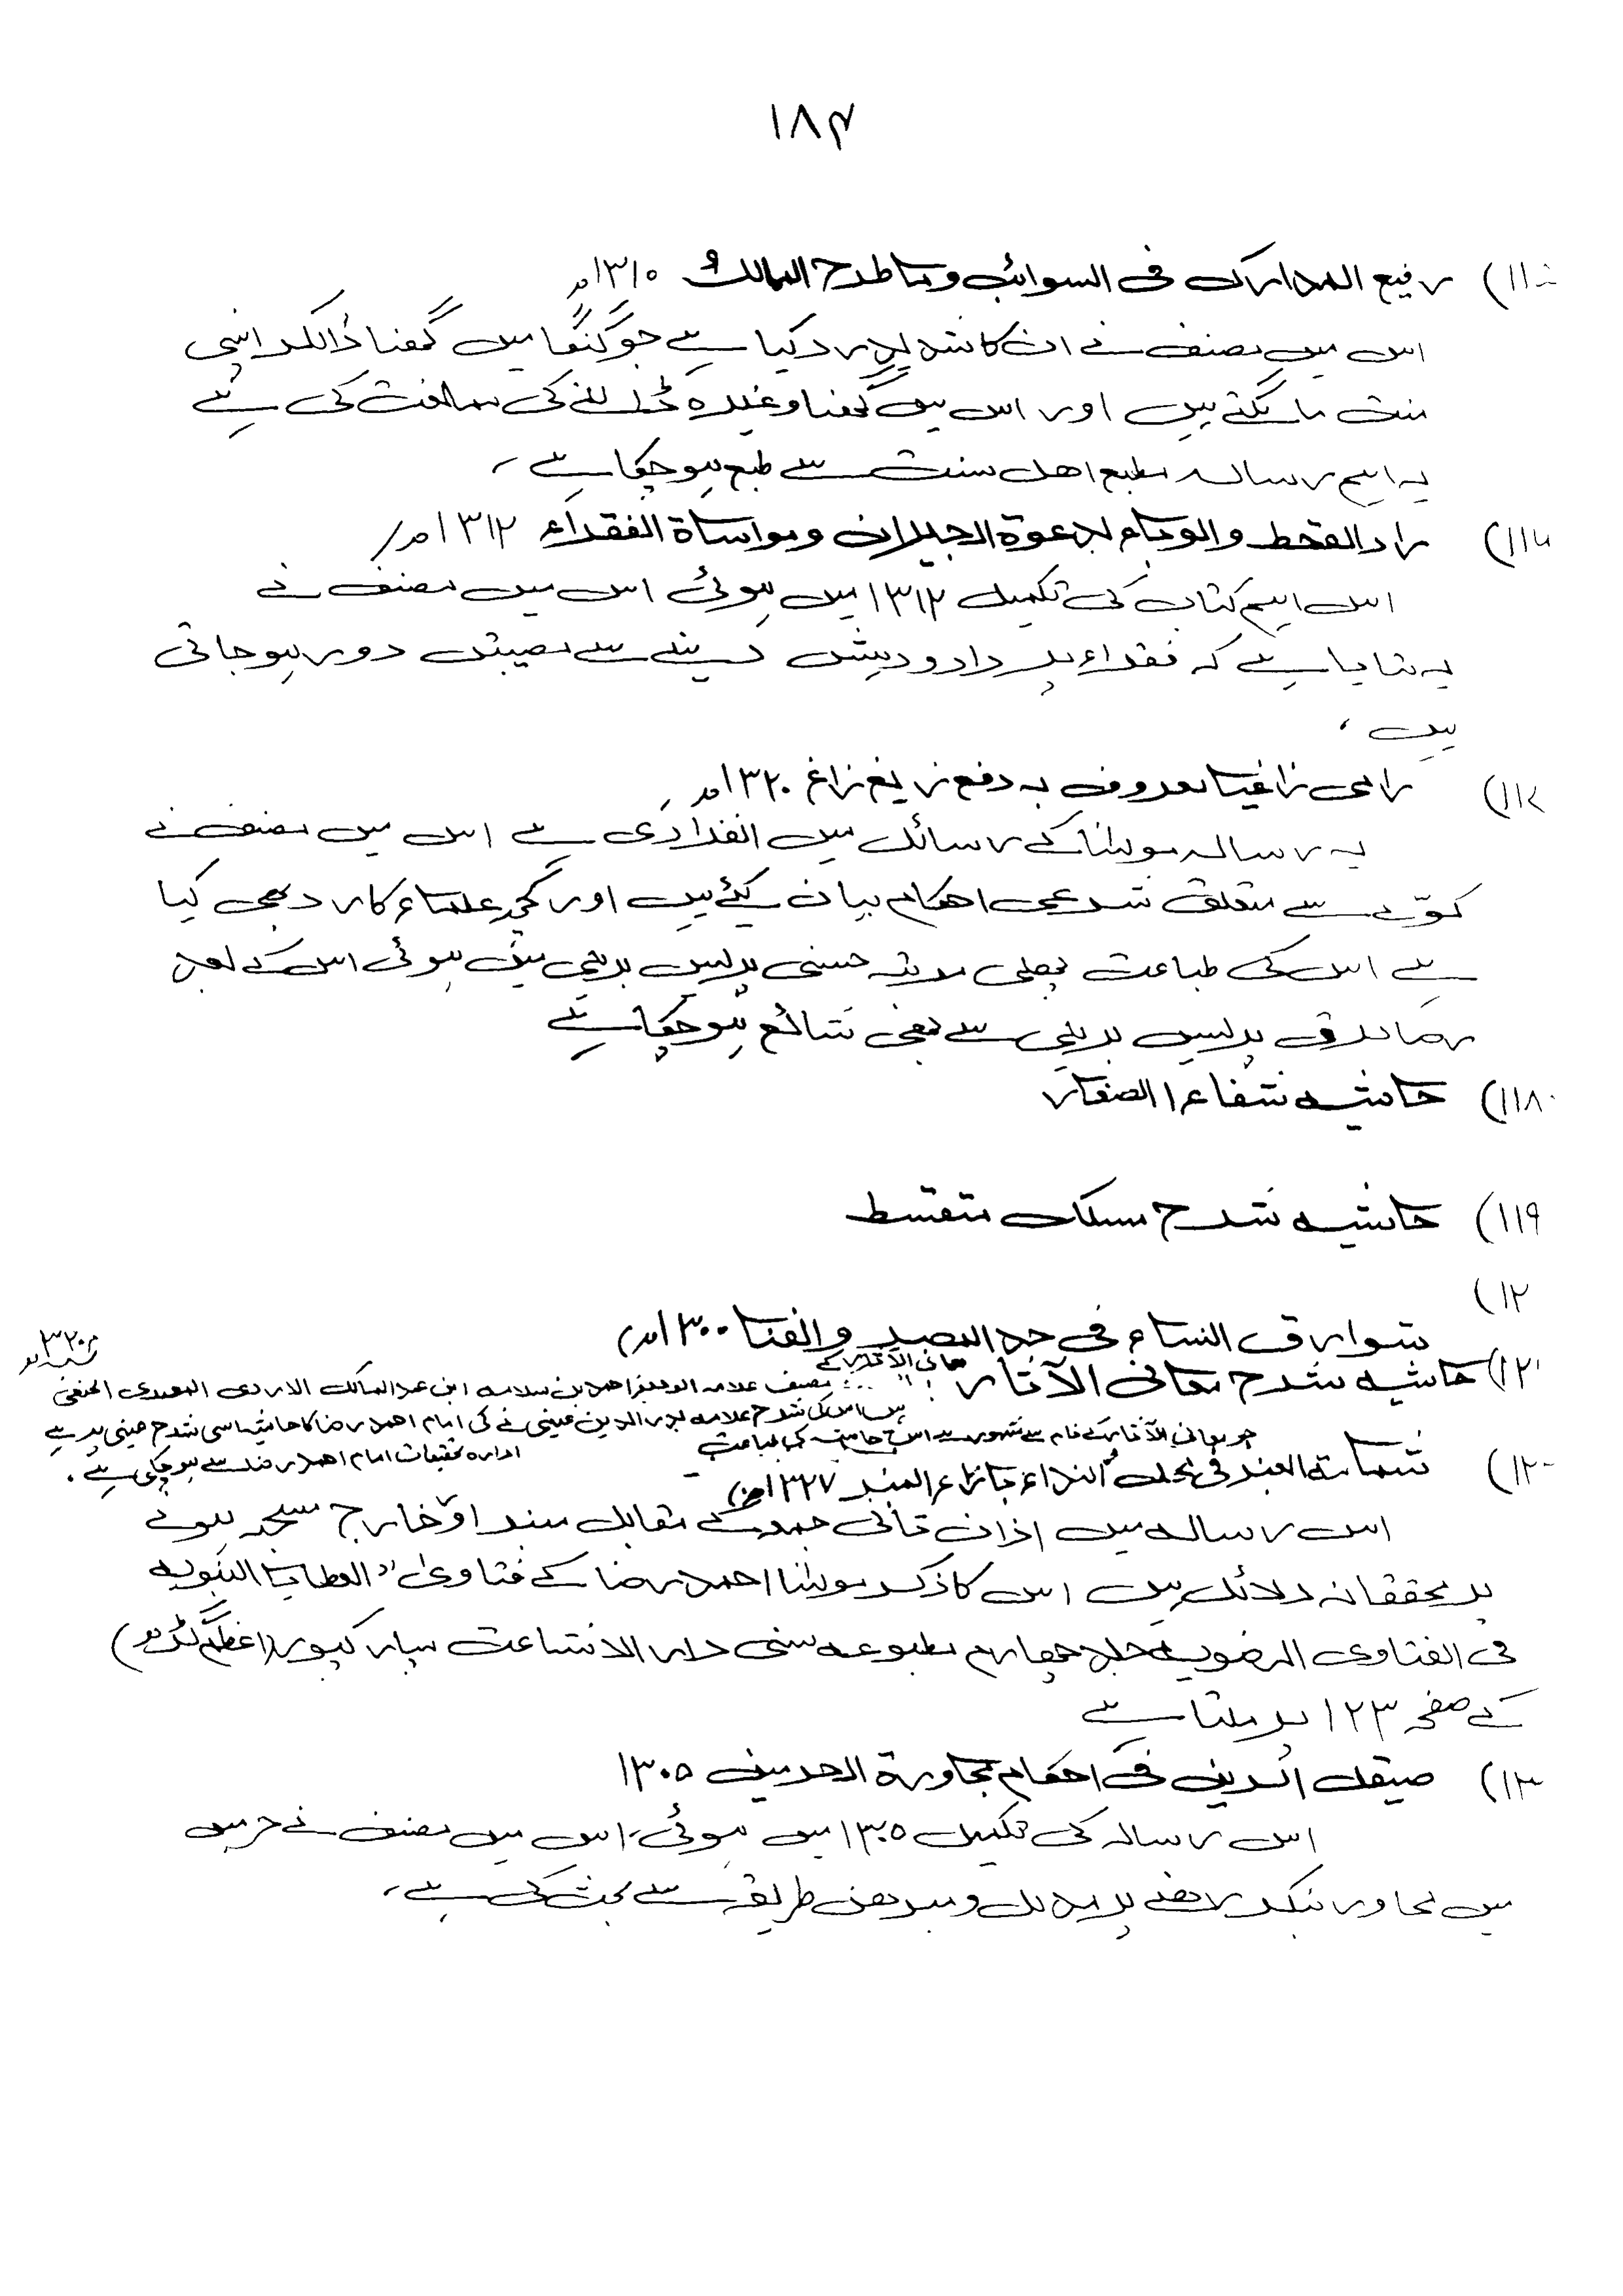 ۱۸۴
۱۱۵) رفیع المدارک فی السوائب وما طرح المالک ۱۳۱۰ھ
اس میں مصنف نے ان کا شدید رد کیا ہے جو گنگا میں گہنا ڈالکر اپنی
منت مانگتے ہیں اور اس میں گہنا وغیرہ ڈالنے کی ممانعت کی ہے
یہ اہم رسالہ مطبع اھل سنت سے طبع ہوچکا ہے ۔
۱۱۶) راد القحط والوباء لدعوة الجیران ومواساة الفقراء ۱۳۱۲ھ
اس اہم کتاب کی تکمیل ۱۳۱۲ میں ہوئی اس میں مصنف نے
یہ بتایا ہے کہ فقراء پر دادودہش کرنے سے مصیبتیں دور ہوجاتی
ہیں ،
۱۱۷) رامی زاغیا معروف بہ دفع زیغ زاغ ۱۳۲۰ھ
یہ رسالہ مولانا کے رسائل میں انفرادی ہے اس میں مصنف نے
کوّے سے متعلق شرعی احکام بیان کیٔے ہیں اور کچھ علماء کا رد بھی کیا
ہے اس کی طباعت پہلی مرتبہ حسنی پریس بریلی میں ہوئی اس کے بعد
رضا برقی پریس بریلی سے بھی شائع ہوچکا ہے
۱۱۸) حاشیہ شفاء السقام
۱۱۹) حاشیہ شرح مسلک متقسط
۱۲) شوارق النساء فی حد المصر والفنا ۱۳۰۰ھ
۱۲۱) حاشیہ شرح معانی الآثار
معانی الآثار کے مصنف علامہ ابو جعفر احمد بن سلامہ ابن عبد المالک الازدی المصری الحنفی
ہیں اس کی شرح علامہ بدر الدین عینی نے کی امام احمد رضا کا حاشیہ اسی شرح عینی پر ہے
جو معانی الآثار کے نام سے مشہور ہے اس حاشیہ کی طباعت
ادارہ تحقیقات امام احمد رضا سے ہوچکی ہے ۔
۱۲) شمامة العنبر فی محل النداء بازاء المنبر ۱۳۲۷ھ
اس رسالہ میں اذان ثانی جمعہ کے مقابل منبر اور خارج مسجد ہونے
پر محققانہ دلائل ہیں اس کا ذکر مولٰنا احمد رضا کے فتاویٰ "العطایا النبویہ
فی الفتاوی الرضویہ جلد چہارم مطبوعہ سنی دار الاشاعت مبارکپور (اعظم گڑھ)
کے صفحہ ۱۲۳ پر ملتا ہے
۱۳) صیقل الرین فی احکام مجاورة الحرمین ۱۳۰۵
اس رسالہ کی تکمیل ۱۳۰۵ میں ہوئی، اس میں مصنف نے حرمین
میں مجاور بنکر رھنے پر مدلل و مبرھن طریقہ سے بحث کی ہے،